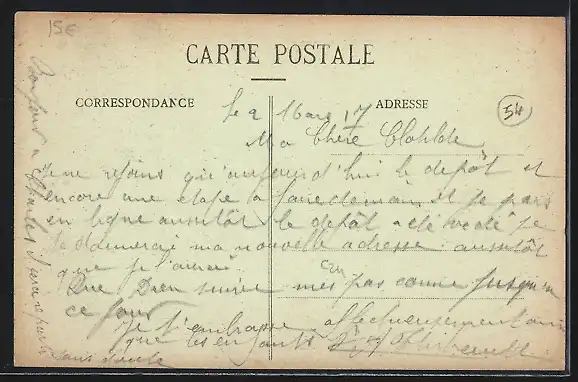 15€
CARTE POSTALE
CORRESPONDANCE
ADRESSE
54
Le 2 Mars 17
Ma Chère Clotilde
Je ne rejoins qu'aujourd'hui le depôt et
encore une etape a faire demain et je pars
en ligne aussitôt le depôt a été je
te donnerai ma nouvelle adresse aussitôt
que je l'aurai.
Que Dieu mes pas comme jusqu'a
ce jour
Je t'embrasse affectueusement ainsi
que les enfants
Bonjour a Charles
sans doute